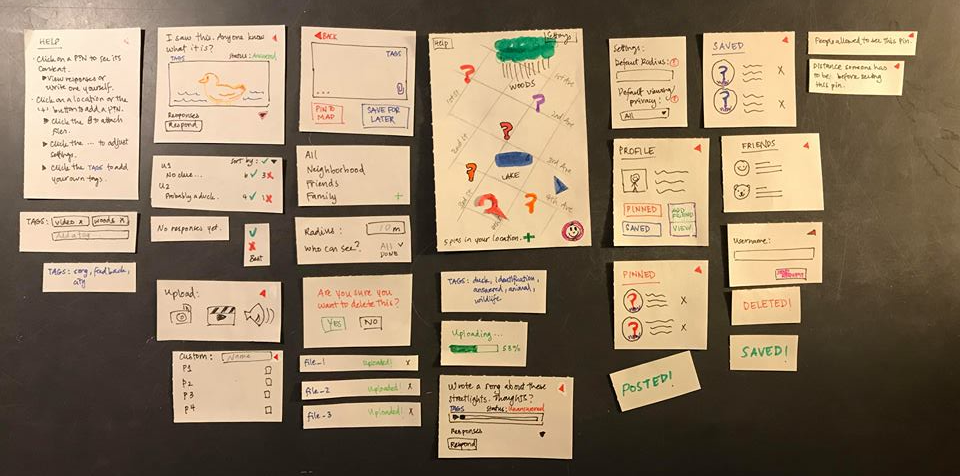 HELP
• Click on a PIN to see its
content.
▶ View responses or
write one yourself.
• Click on a location or the
'+' button to add a PIN.
▶ Click the to attach
files.
▶ Click the ... to adjust
settings.
▶ Click the TAGS to add
your own tags.
TAGS: video x woods x
Add a tag
TAGS: song, feedback,
city
I saw this. Anyone know
what it is?
TAGS Status: Answered
Responses
Respond
U1 Sort by: ✓
No clue... 6 ✓ 3 x
U2
Probably a duck. 4 ✓ 1 x
No responses yet.
✓
x
Best
Upload:
Custom: Name
P1
P2
P3
P4
BACK
TAGS
PIN TO
MAP
SAVE FOR
LATER
All
Neighborhood
Friends
Family +
Radius: 10 m
Who can see? All ✓
DONE
Are you sure you
want to delete this?
YES NO
file_1 Uploaded! x
file_2 Uploaded! x
file_3 Uploaded! x
Help Settings
WOODS
1st Ave
2nd Ave
3rd Ave
4th Ave
LAKE
5 pins in your location. +
TAGS: duck, identification,
answered, animal,
wildlife
Uploading...
53%
Wrote a song about these
streetlights. Thoughts?
TAGS Status: Unanswered
Responses
Respond
Settings:
Default Radius: ?
Default viewing
privacy: ?
All
PROFILE
PINNED
ADD
FRIEND
SAVED
VIEW
PINNED
? x
? x
POSTED!
SAVED
? x
? x
FRIENDS
Username:
DELETED!
SAVED!
People allowed to see this pin.
Distance someone has
to be before seeing
this pin.